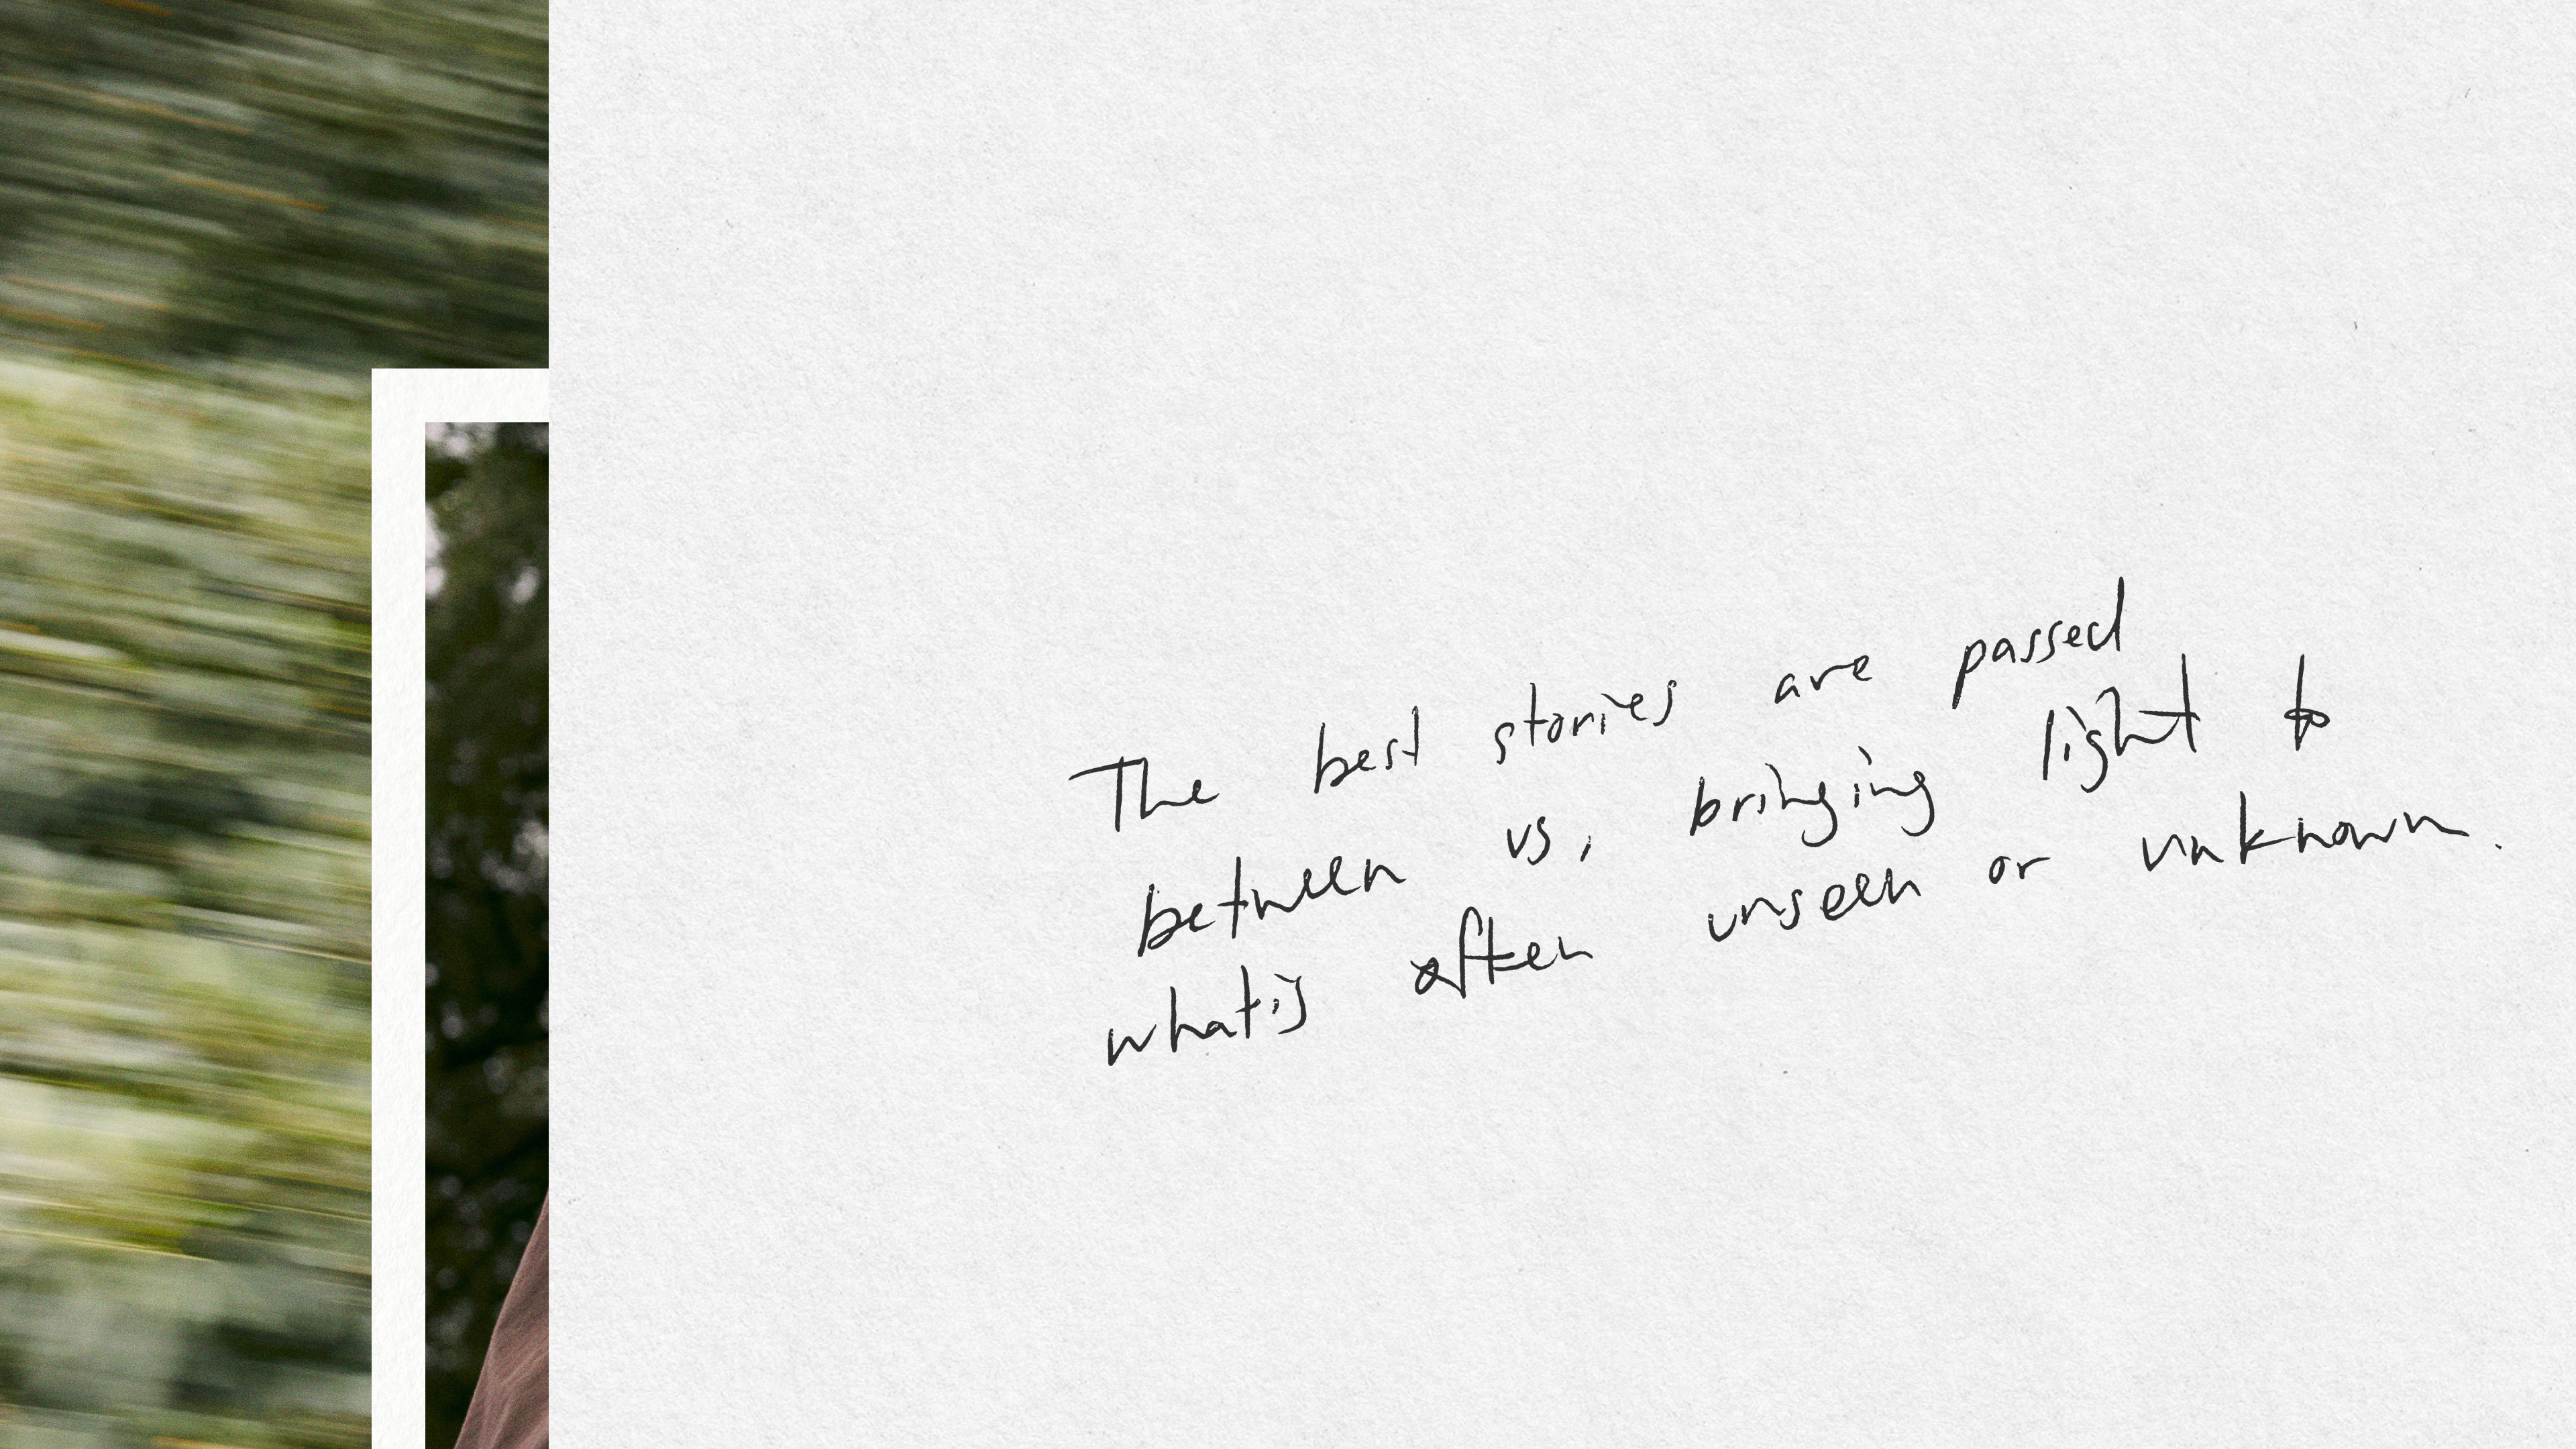 The best stories are passed
between us, bringing light to
what is often unseen or unknown.